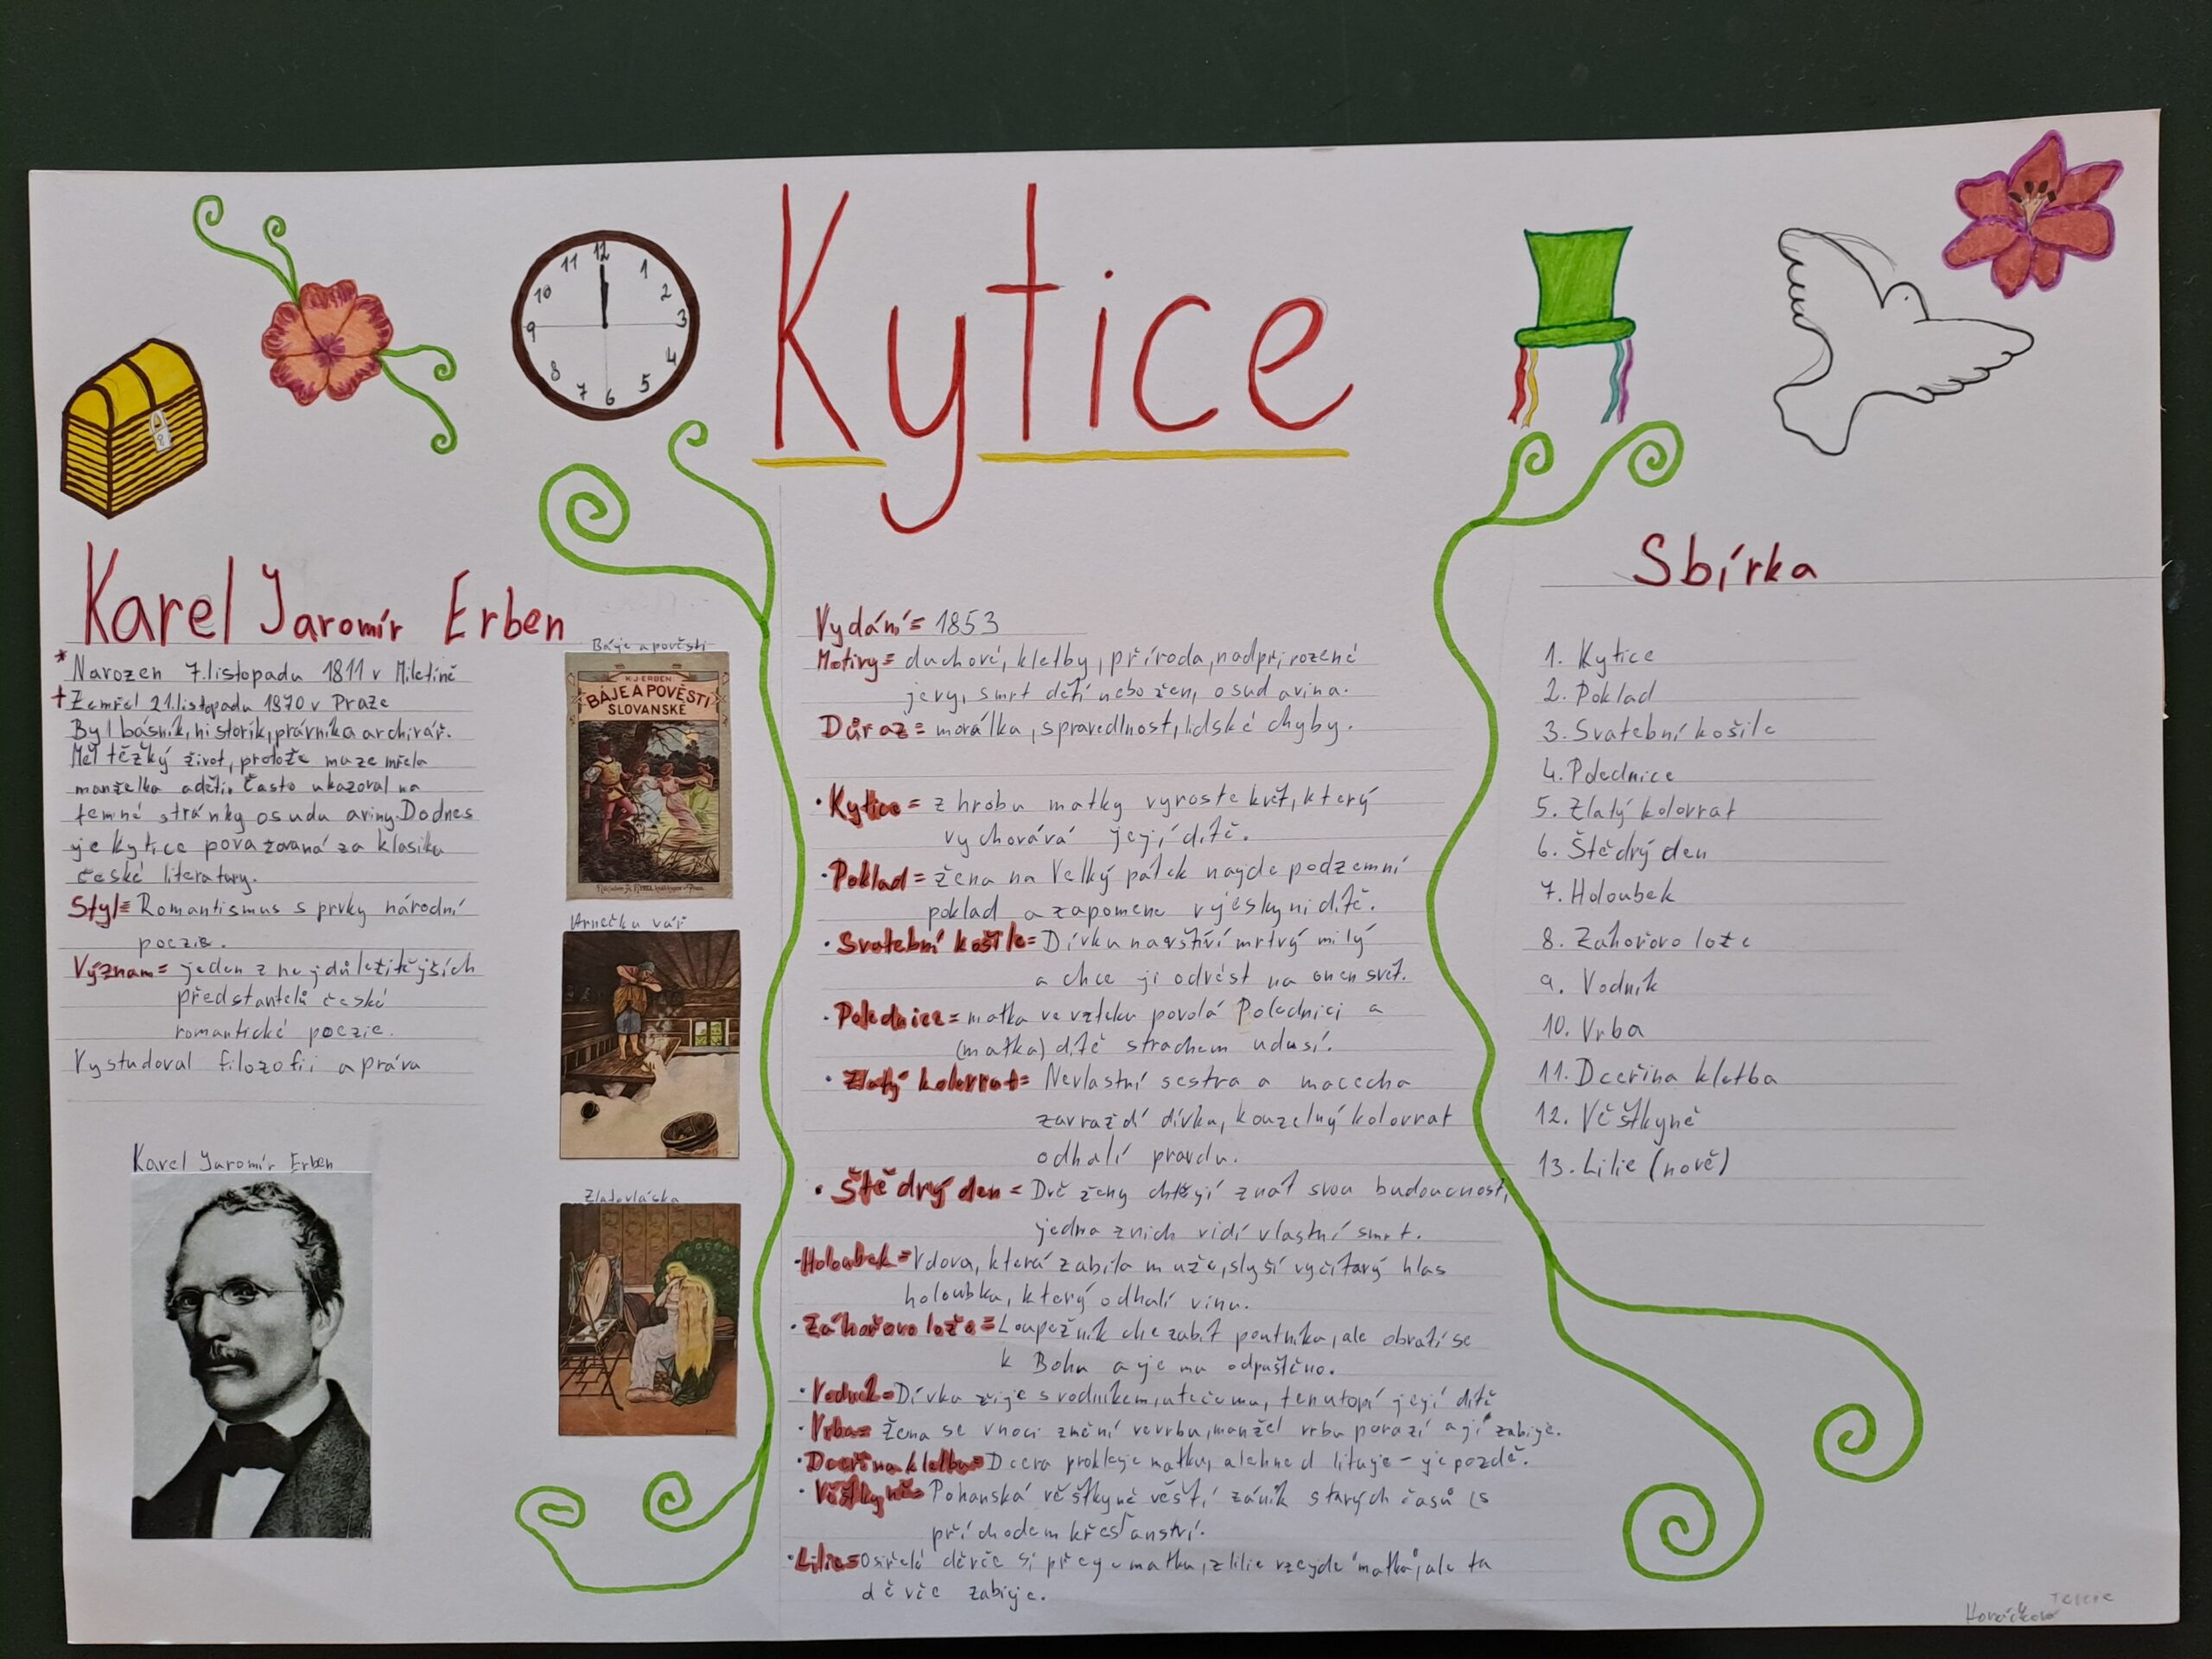 Kytice
12
1
2
3
4
5
6
7
8
9
10
11
Karel Jaromír Erben
* Narozen 7. listopadu 1811 v Miletíně
† Zemřel 21. listopadu 1870 v Praze
Byl básník, historik, právník a archivář.
Měl těžký život, protože mu zemřela
manželka a děti. Často ukazoval na
temné stránky osudu a viny. Dodnes
je kytice považovaná za klasiku
české literatury.
Styl = Romantismus s prvky národní
poezie.
Význam = jeden z nejdůležitějších
představitelů české
romantické poezie.
Vystudoval filozofii a práva
Karel Jaromír Erben
Báje a pověsti
K. J. ERBEN:
BÁJE A POVĚSTI
SLOVANSKÉ
Hrnečku vař
Zlatovláska
Vydání = 1853
Motivy = duchové, kletby, příroda, nadpřirozené
jevy, smrt dětí nebo žen, osud a vina.
Důraz = morálka, spravedlnost, lidské chyby.
• Kytice = z hrobu matky vyroste květ, který
vychovává její dítě.
• Poklad = žena na Velký pátek najde podzemní
poklad a zapomene v jeskyni dítě.
• Svatební košile = Dívku navštíví mrtvý milý
a chce ji odvést na onen svět.
• Polednice = matka ve vzteku povolá Polednici a
(matka) dítě strachem udusí.
• Zlatý kolovrat = Nevlastní sestra a macecha
zavraždí dívku, kouzelný kolovrat
odhalí pravdu.
• Štědrý den = Dvě ženy chtějí znát svou budoucnost,
jedna z nich vidí vlastní smrt.
• Holoubek = Vdova, která zabila muže, slyší vyčítavý hlas
holoubka, který odhalí vinu.
• Záhořovo lože = Loupežník chce zabít poutníka, ale obrátí se
k Bohu a je mu odpuštěno.
• Vodník = Dívka žije s vodníkem, uteče mu, ten utopí její dítě
• Vrba = Žena se v noci změní ve vrbu, manžel vrbu porazí a jí zabije.
• Dceřina kletba = Dcera prokleje matku, ale hned lituje - je pozdě.
• Věštkyně = Pohanská věštkyně věstí zánik starých časů (s
příchodem křesťanství.
• Lilie = Osiřelé děvče si přeje matku, z lilie vzejde "matka", ale ta
děvče zabije.
Sbírka
1. Kytice
2. Poklad
3. Svatební košile
4. Polednice
5. Zlatý kolovrat
6. Štědrý den
7. Holoubek
8. Záhořovo lože
9. Vodník
10. Vrba
11. Dceřina kletba
12. Věštkyně
13. Lilie (nově)
Horáčková